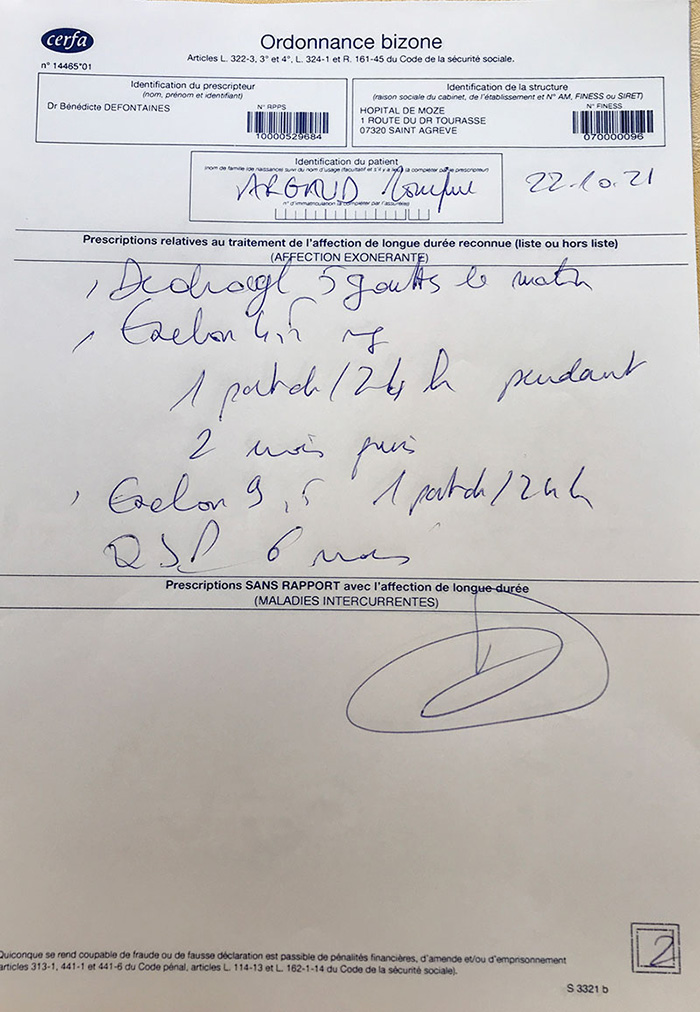 cerfa
n° 14465*01
Ordonnance bizone
Articles L. 322-3, 3° et 4°, L. 324-1 et R. 161-45 du Code de la sécurité sociale.
Identification du prescripteur
(nom, prénom et identifiant)
Dr Bénédicte DEFONTAINES
N° RPPS
10000529684
Identification de la structure
(raison sociale du cabinet, de l'établissement et N° AM, FINESS ou SIRET)
HOPITAL DE MOZE
1 ROUTE DU DR TOURASSE
07320 SAINT AGREVE
N° FINESS
070000096
Identification du patient
(nom de famille (de naissance) suivi du nom d'usage (facultatif et s'il y a lieu) (à compléter par le prescripteur)
ARGAUD
22.10.21
n° d'immatriculation (à compléter par l'assuré(e))
Prescriptions relatives au traitement de l'affection de longue durée reconnue (liste ou hors liste)
(AFFECTION EXONERANTE)
5 gouttes le matin
Exelon mg
1 patch/24 h pendant
2 mois puis
Exelon 9,5 1 patch/24h
QSP 6 mois
Prescriptions SANS RAPPORT avec l'affection de longue durée
(MALADIES INTERCURRENTES)
Quiconque se rend coupable de fraude ou de fausse déclaration est passible de pénalités financières, d'amende et/ou d'emprisonnement
articles 313-1, 441-1 et 441-6 du Code pénal, articles L. 114-13 et L. 162-1-14 du Code de la sécurité sociale).
2
S 3321 b